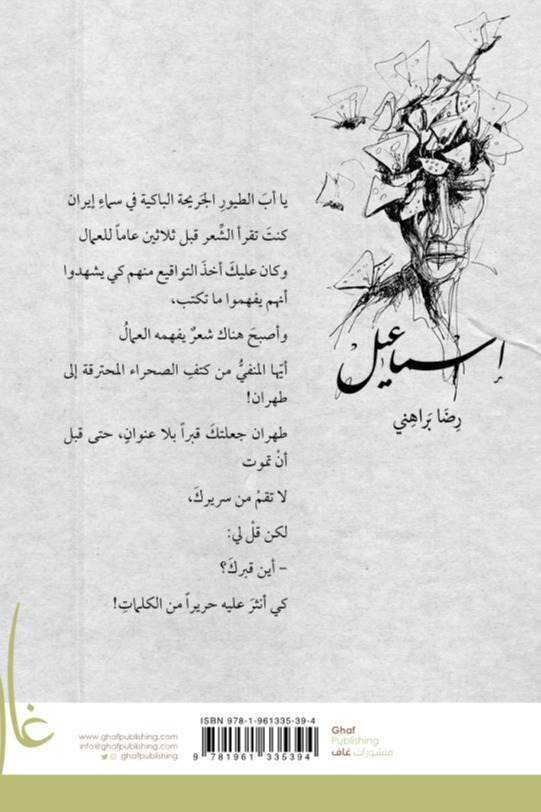 يا أبَ الطيورِ الجَريحة الباكية في سماءِ إيران
كنتَ تقرأ الشِّعر قبل ثلاثين عاماً للعمال
وكان عليكَ أخذَ التواقيع منهم كي يشهدوا
أنهم يفهموا ما تكتب،
وأصبحَ هناك شعرٌ يفهمه العمالُ
أيّها المنفيُّ من كتفِ الصحراء المحترقة إلى
طهران!
طهران جعلتكَ قبراً بلا عنوانٍ، حتى قبل
أنْ تموت
لا تقمْ من سريركَ،
لكن قلْ لي:
– أين قبركَ؟
كي أنثرَ عليه حريراً من الكلماتِ!
إسماعيل
رِضَا بَراهِني
غاف
www.ghafpublishing.com
info@ghafpublishing.com
ghafpublishing
ISBN 978-1-961335-39-4
9 781961 335394
Ghaf
Publishing
منشورات غاف